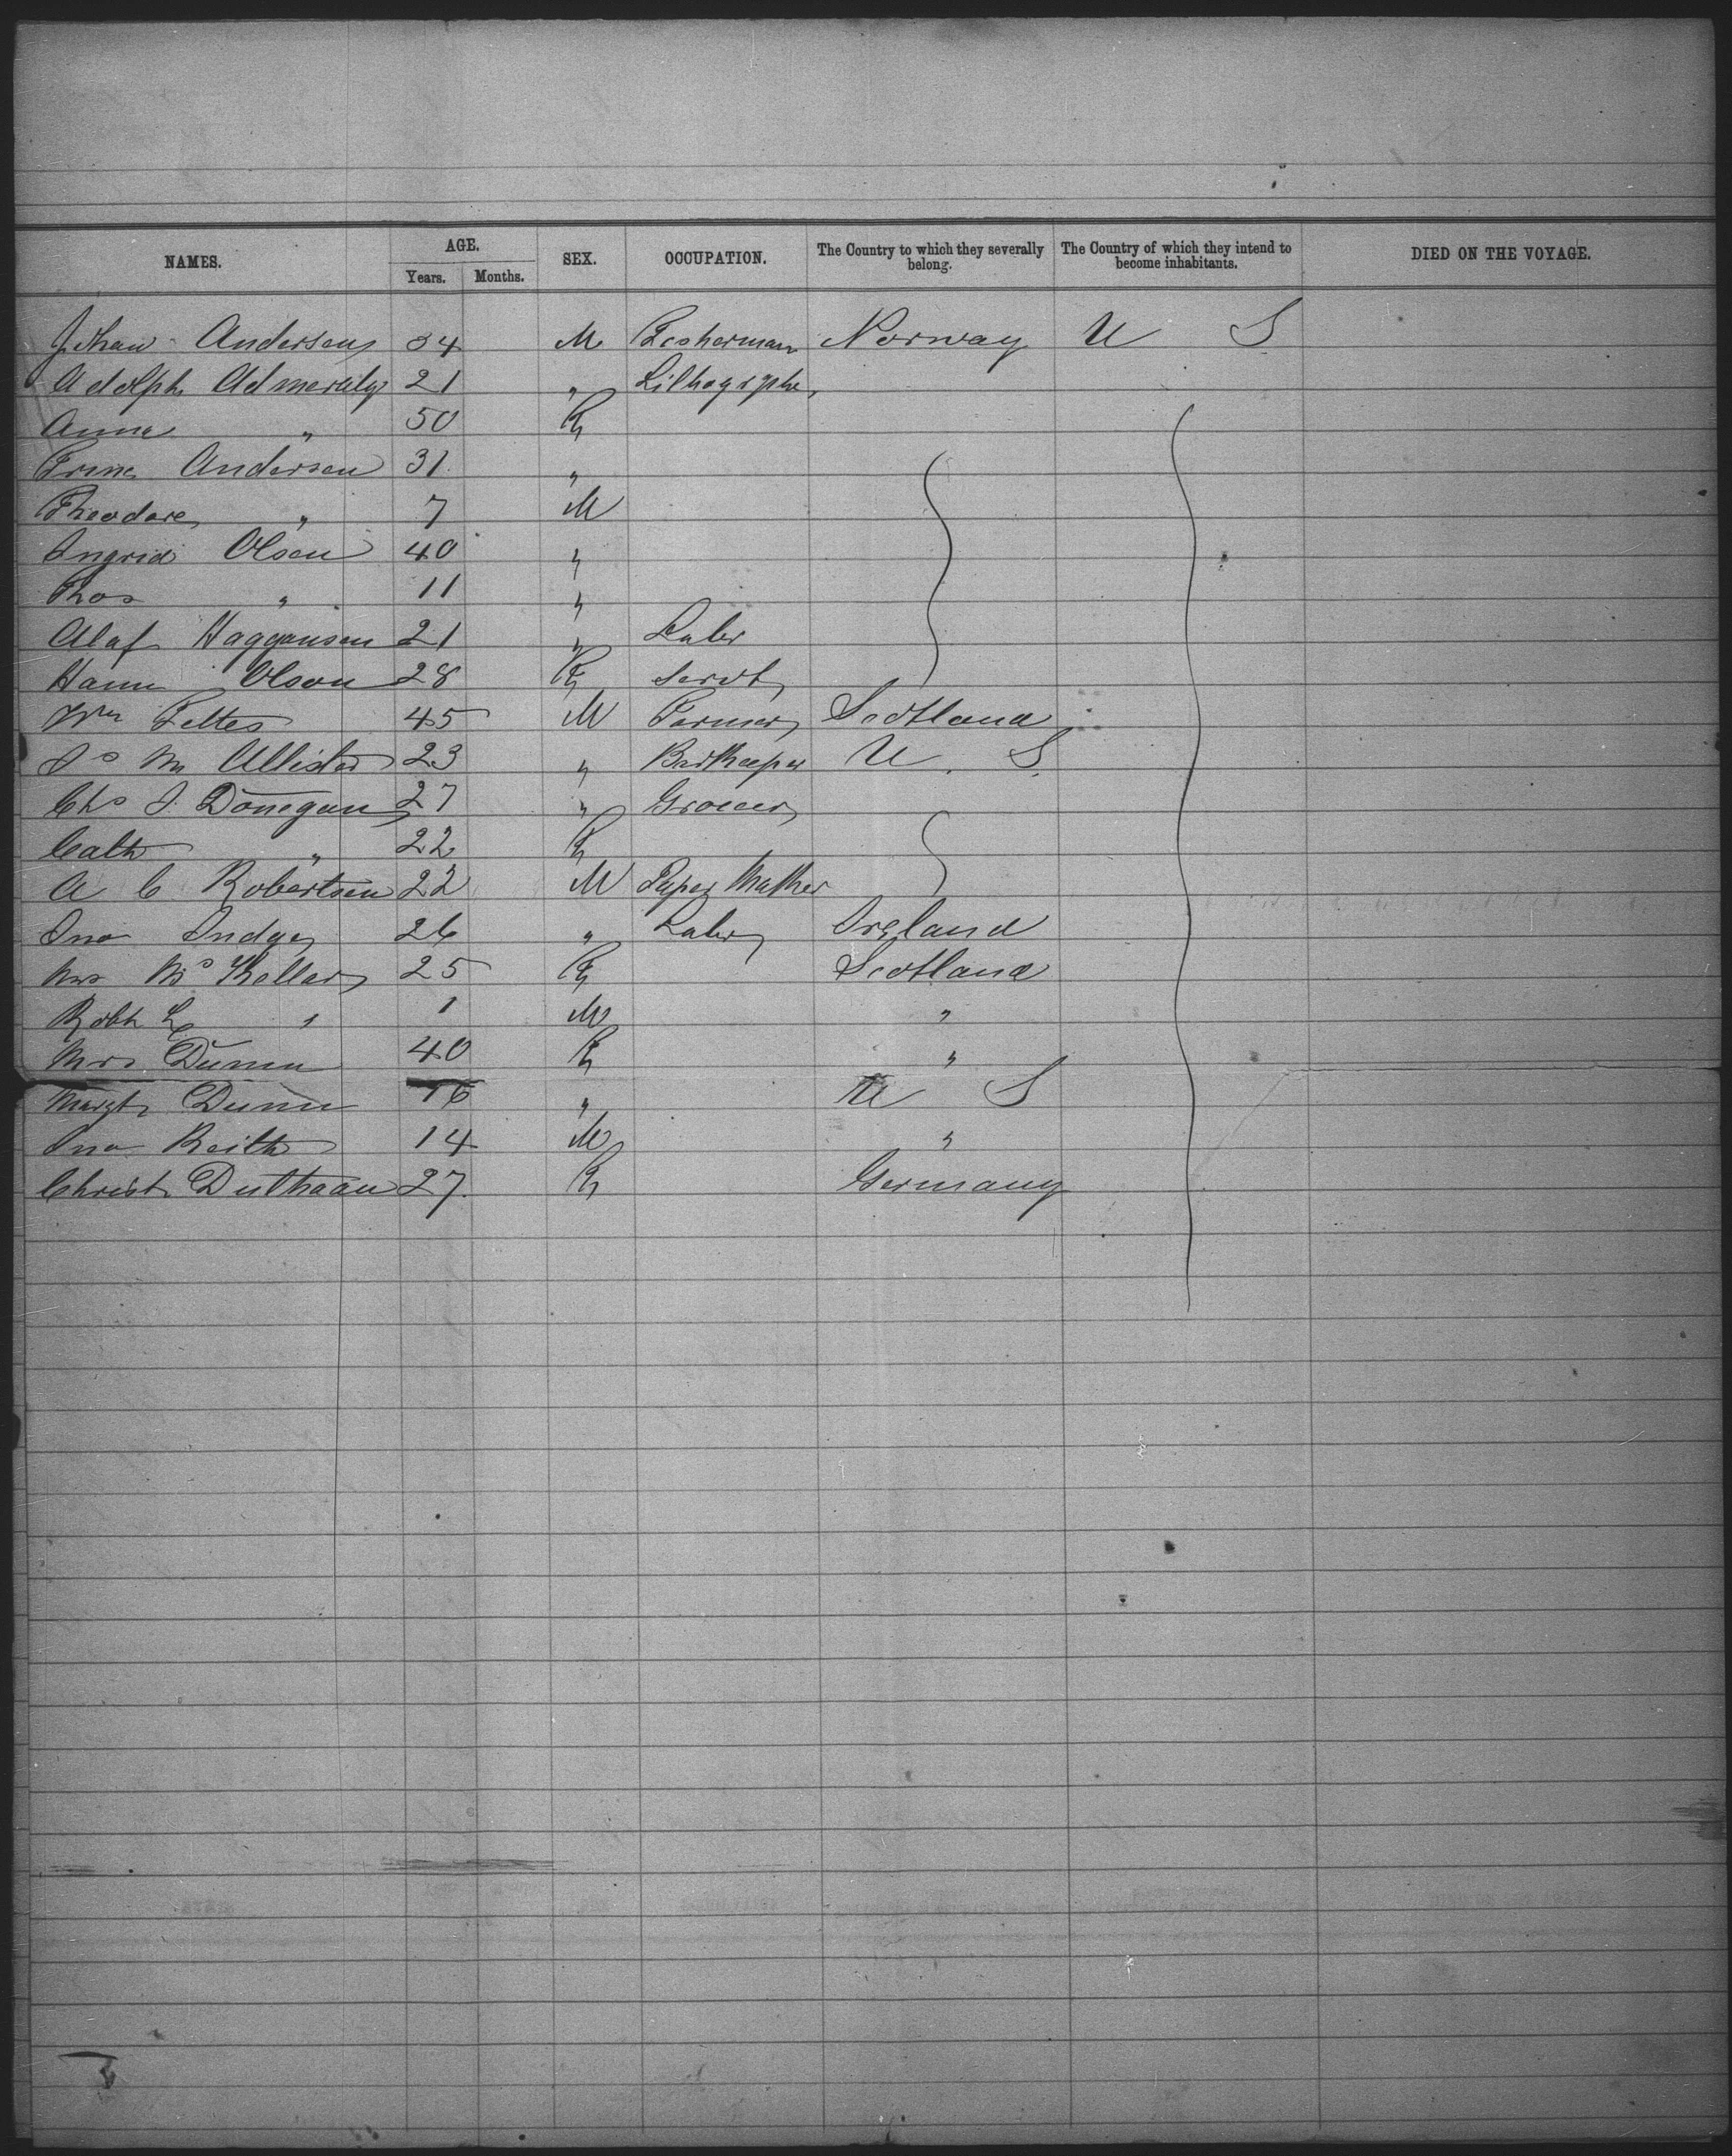 NAMES. AGE. SEX. OCCUPATION. The Country to which they severally belong. The Country of which they intend to become inhabitants. DIED ON THE VOYAGE.
Years. Months.
Johan Andersen 34 M Fisherman Norway U S
Adolph 21 " Lithogrphr
Anna " 50 F
Trine Andersen 31 "
Theodore " 7 M
Ingrid Olsen 40 "
Thos " 11 "
Alaf Haggansen 21 " Labr
Hann Olson 28 F Servt
Wm Fettes 45 M Farmer Scotland
Js Mc Allister 23 " Barkeeper U. S.
Chs J. Donegan 27 " Grocer
Cath " 22 F
A C Robertson 22 M Paper Maker
Jno Judge 26 " Labr Ireland
Mrs Mc Kellar 25 F Scotland
Robt L " 1 M "
Mrs Dunn 40 F "
Margt Dunn 16 " U S
Jno Keith 14 M "
Christ 27 F Germany